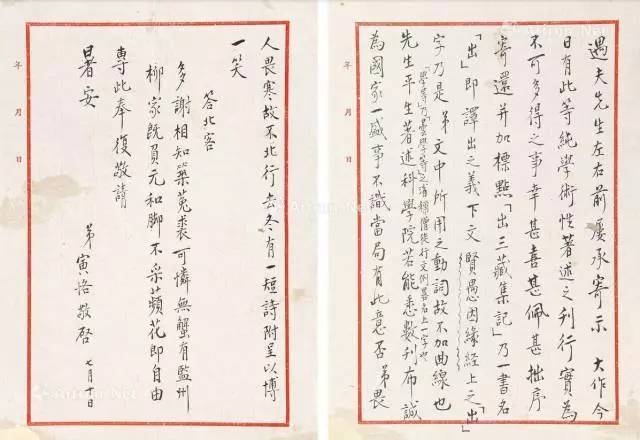 遇夫先生左右前屢承寄示 大作今
日有此等純學術性著述之刊行實為
不可多得之事幸甚喜甚佩甚拙序
寄還并加標點「出三藏集記」乃一書名
「出」即譯出之義下文賢愚因緣經上之「出」
字乃是弟文中所用之動詞故不加曲線也
「學等」乃「曇學等」之省稱僧徒行文例略名上一字也
先生平生著述科學院若能悉數刊布誠
為國家一盛事不識當局有此意否弟畏
年 月 日
人畏寒故不北行去冬有一短詩附呈以博
一笑
答北客
多謝相知築菟裘可憐無蟹有監州
柳家既負元和腳不采蘋花即自由
專此奉復敬請
暑安
弟寅恪敬啓 七月 日
年 月 日